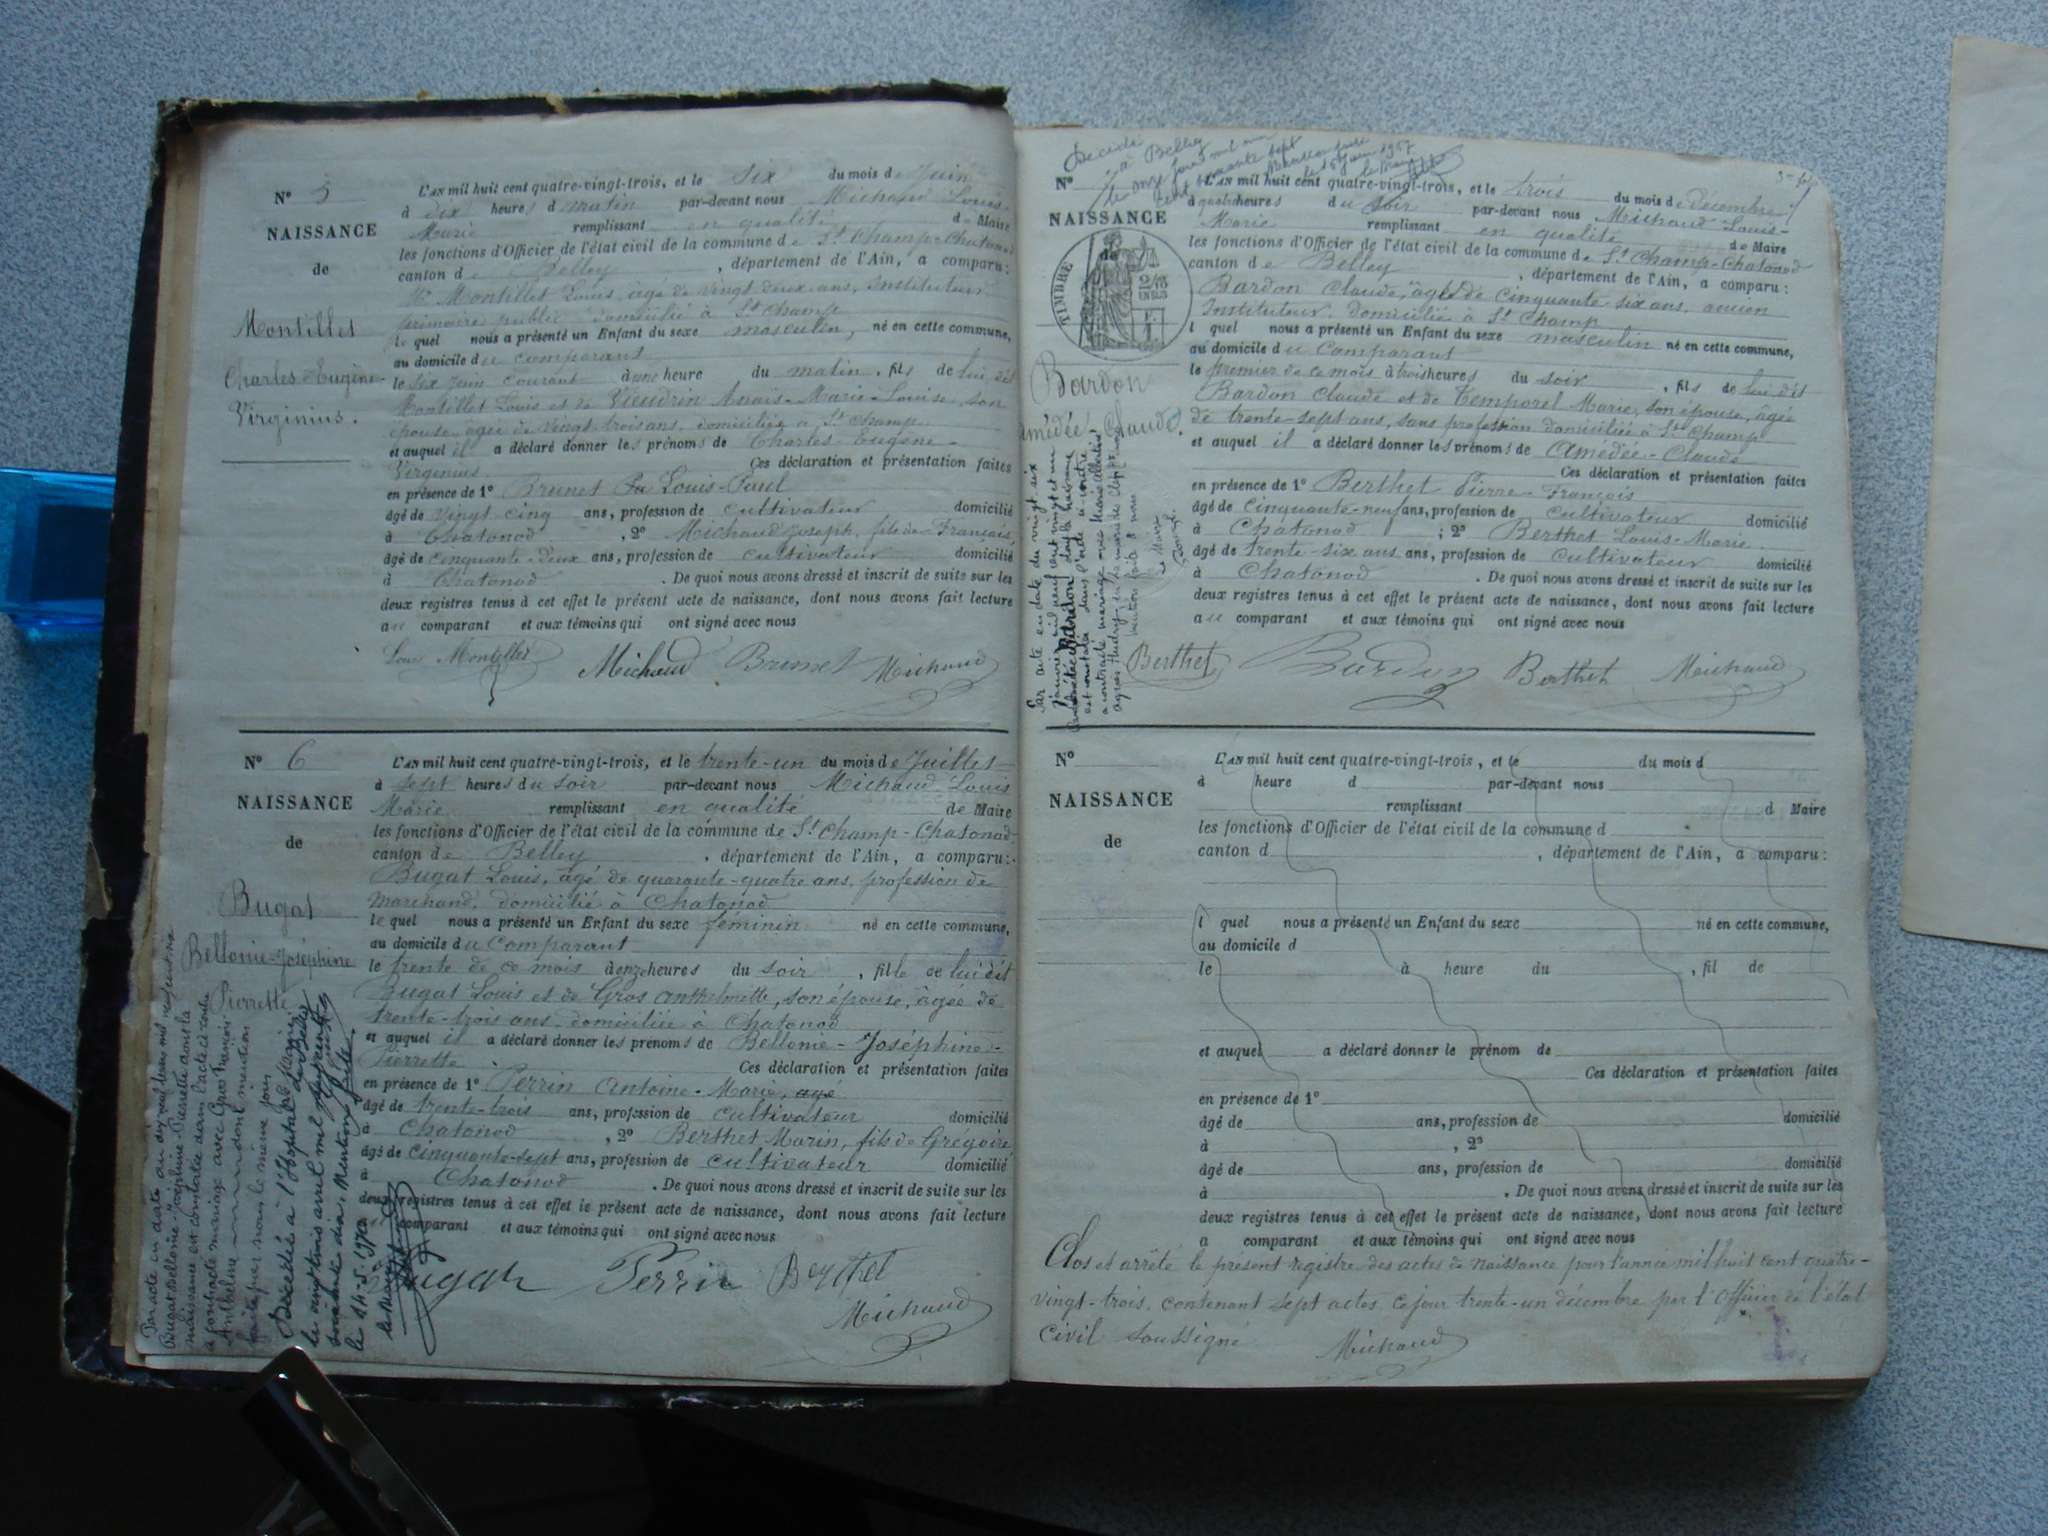 N° 5
NAISSANCE
de
Montillet
Charles-Eugène-
Virginius.
L'AN mil huit cent quatre-vingt-trois, et le six du mois de Juin
à dix heures d matin par-devant nous Michaud Louis
Marie remplissant en qualité de Maire
les fonctions d'Officier de l'état civil de la commune de St Champ-Chatonod
canton de Belley, département de l'Ain, a comparu:
Montillet Louis, âgé de vingt deux ans, Instituteur
primaire public domicilié à St Champ
le quel nous a présenté un Enfant du sexe masculin, né en cette commune,
au domicile du comparant
le six Juin courant à une heure du matin, fils de lui dit
Montillet Louis et de Vieudrin Anaïs-Marie-Louise, son
épouse, âgée de vingt trois ans, domiciliée à St Champ
et auquel il a déclaré donner les prénoms de Charles-Eugène-
Virginius Ces déclaration et présentation faites
en présence de 1° Brunet Louis-Paul
âgé de vingt cinq ans, profession de cultivateur domicilié
à Chatonod, 2° Michaud Joseph, fils de François,
âgé de cinquante-deux ans, profession de cultivateur domicilié
à Chatonod. De quoi nous avons dressé et inscrit de suite sur les
deux registres tenus à cet effet le présent acte de naissance, dont nous avons fait lecture
au comparant et aux témoins qui ont signé avec nous
Louis Montillet Michaud Brunet Michaud
N° 6
NAISSANCE
de
Bugat
Bellonie-Joséphine
Pierrette
L'AN mil huit cent quatre-vingt-trois, et le trente-un du mois de Juillet
à sept heures du soir par-devant nous Michaud Louis
Marie remplissant en qualité de Maire
les fonctions d'Officier de l'état civil de la commune de St Champ-Chatonod
canton de Belley, département de l'Ain, a comparu:
Bugat Louis, âgé de quarante-quatre ans, profession de
marchand, domicilié à Chatonod
le quel nous a présenté un Enfant du sexe féminin né en cette commune,
au domicile du comparant
le trente de ce mois à onze heures du soir, fille de lui dit
Bugat Louis et de Gros Anthelmette, son épouse, âgée de
trente-trois ans, domiciliée à Chatonod
et auquel il a déclaré donner les prénoms de Bellonie-Joséphine-
Pierrette Ces déclaration et présentation faites
en présence de 1° Perrin Antoine-Marie, agé
âgé de trente-trois ans, profession de cultivateur domicilié
à Chatonod, 2° Berthet Marin, fils de Grégoire
âgé de cinquante-sept ans, profession de cultivateur domicilié
à Chatonod. De quoi nous avons dressé et inscrit de suite sur les
deux registres tenus à cet effet le présent acte de naissance, dont nous avons fait lecture
au comparant et aux témoins qui ont signé avec nous
Bugat Perrin Berthet
Michaud
Par acte en date du dix neuf
Bugat Bellonie-Joséphine-Pierrette dont la
naissance est constatée dans l'acte ci contre
a contracté mariage avec Gros François
Anthelme dont mention
faite par nous le même jour
Décédée à l'Hôpital de Belley
le vingt trois avril mil neuf cent
soixante dix. Mention faite
le 14.5.1970
Décédé
à Belley
le onze
cent cinquante sept
Mention faite
N°
NAISSANCE
de
TIMBRE
Bardon
Amédée Claude.
L'AN mil huit cent quatre-vingt-trois, et le trois du mois de décembre
à quatre heures du soir par-devant nous Michaud Louis-
Marie remplissant en qualité de Maire
les fonctions d'Officier de l'état civil de la commune de St Champ-Chatonod
canton de Belley, département de l'Ain, a comparu:
Bardon Claude, âgé de cinquante six ans, ancien
Instituteur, domicilié à St Champ
l quel nous a présenté un Enfant du sexe masculin né en cette commune,
au domicile du Comparant
le premier de ce mois à trois heures du soir, fils de lui dit
Bardon Claude et de Temporel Marie, son épouse, âgée
de trente-sept ans, sans profession domiciliée à St Champ
et auquel il a déclaré donner les prénoms de Amédée-Claude
Ces déclaration et présentation faites
en présence de 1° Berthet Pierre-François
âgé de cinquante-neuf ans, profession de cultivateur domicilié
à Chatonod; 2° Berthet Louis-Marie
âgé de trente-six ans ans, profession de cultivateur domicilié
à Chatonod. De quoi nous avons dressé et inscrit de suite sur les
deux registres tenus à cet effet le présent acte de naissance, dont nous avons fait lecture
au comparant et aux témoins qui ont signé avec nous
Berthet Bardon Berthet Michaud
Par acte en date du vingt six
janvier mil neuf cent vingt et un
Bardon dont la naissance
est constatée dans l'acte ci-contre
a contracté mariage avec Marie
N°
NAISSANCE
de
L'AN mil huit cent quatre-vingt-trois, et le du mois d
à heure d par-devant nous
remplissant d Maire
les fonctions d'Officier de l'état civil de la commune d
canton d, département de l'Ain, a comparu:
l quel nous a présenté un Enfant du sexe né en cette commune,
au domicile d
le à heure du, fil de
et auquel a déclaré donner le prénom de
Ces déclaration et présentation faites
en présence de 1°
âgé de ans, profession de domicilié
à, 2°
âgé de ans, profession de domicilié
à. De quoi nous avons dressé et inscrit de suite sur les
deux registres tenus à cet effet le présent acte de naissance, dont nous avons fait lecture
a comparant et aux témoins qui ont signé avec nous
Clos et arrêté le présent registre des actes de naissance pour l'année mil huit cent quatre-
vingt-trois, contenant sept actes, ce jour trente-un décembre par l'Officier de l'état
civil soussigné Michaud